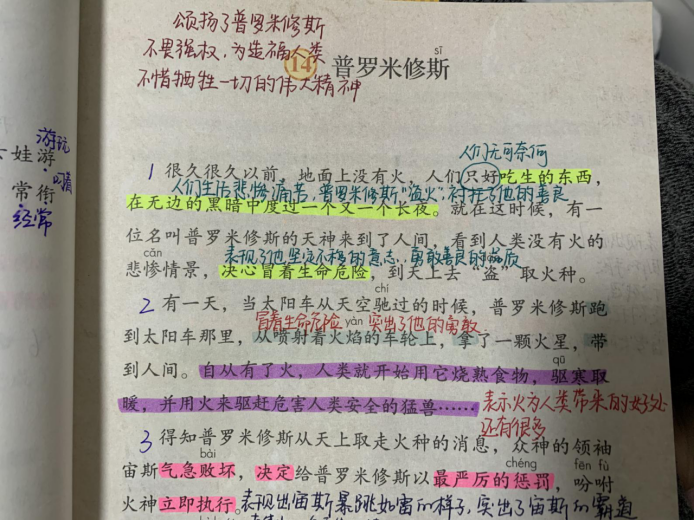 颂扬了普罗米修斯
不畏强权,为造福人类
不惜牺牲一切的伟大精神
sī
14 普罗米修斯
游玩
娃游
叼着
常衔
经常
人们无可奈何
1 很久很久以前,地面上没有火,人们只好吃生的东西,
人们生活悲惨痛苦,普罗米修斯“盗火”,衬托了他的善良
在无边的黑暗中度过一个又一个长夜。就在这时候,有一
位名叫普罗米修斯的天神来到了人间,看到人类没有火的
cǎn
表现了他坚定不移的意志、勇敢善良的品质
悲惨情景,决心冒着生命危险,到天上去“盗”取火种。
chí
2 有一天,当太阳车从天空驰过的时候,普罗米修斯跑
冒着生命危险 yàn 突出了他的勇敢
到太阳车那里,从喷射着火焰的车轮上,拿了一颗火星,带
qū
到人间。自从有了火,人类就开始用它烧熟食物,驱寒取
暖,并用火来驱赶危害人类安全的猛兽……
表示火为人类带来的好处
还有很多
3 得知普罗米修斯从天上取走火种的消息,众神的领袖
bài chéng fēn fù
宙斯气急败坏,决定给普罗米修斯以最严厉的惩罚,吩咐
火神立即执行。表现出宙斯暴跳如雷的样子,突出了宙斯的霸道